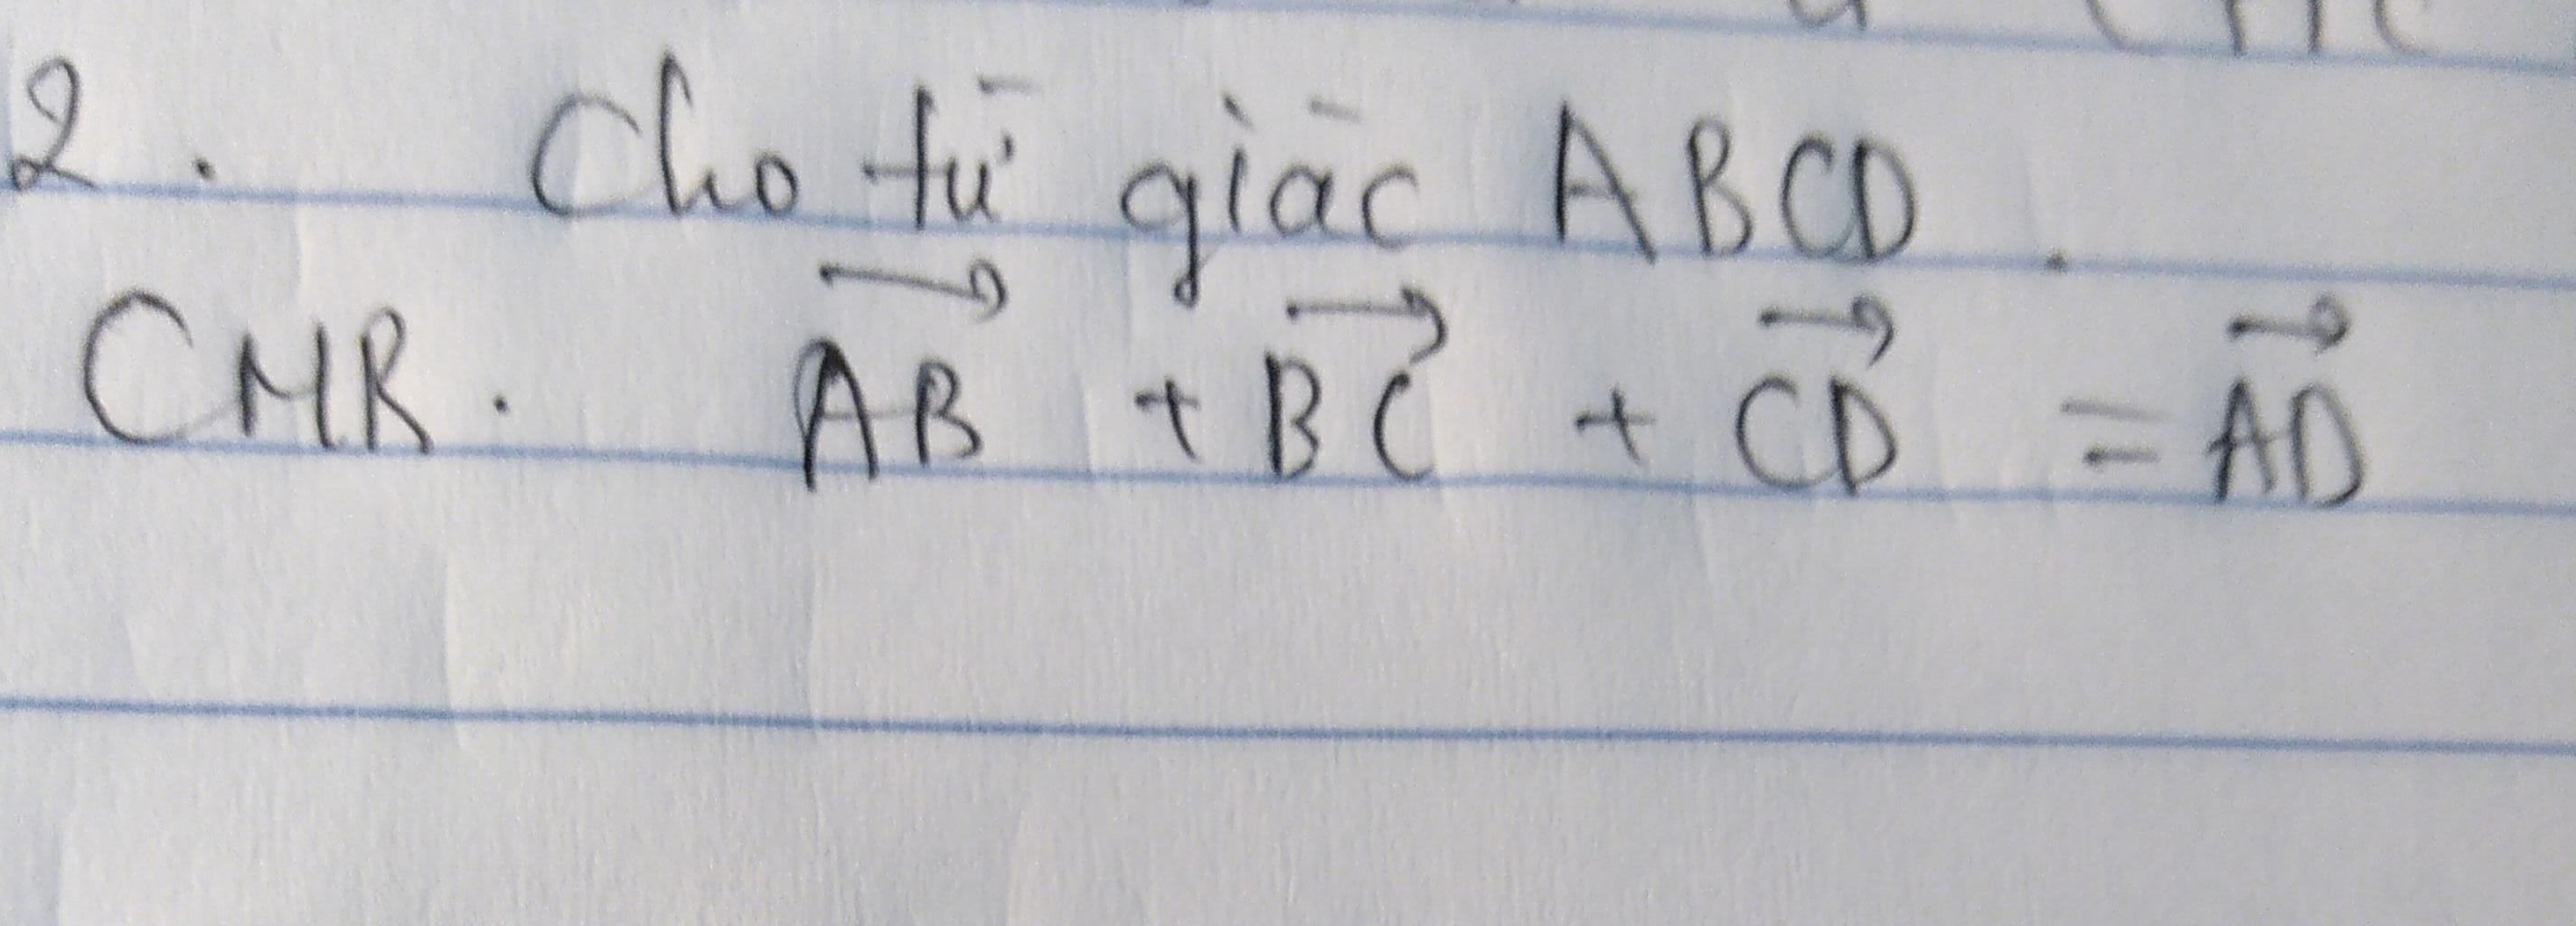 2. Cho tứ giác ABCD.
CMR. $\overrightarrow{AB} + \overrightarrow{BC} + \overrightarrow{CD} = \overrightarrow{AD}$